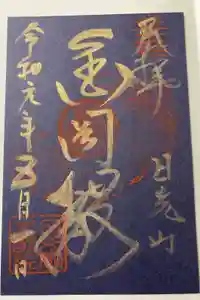 奉拝 日光山
金剛桜
令和元年五月一日